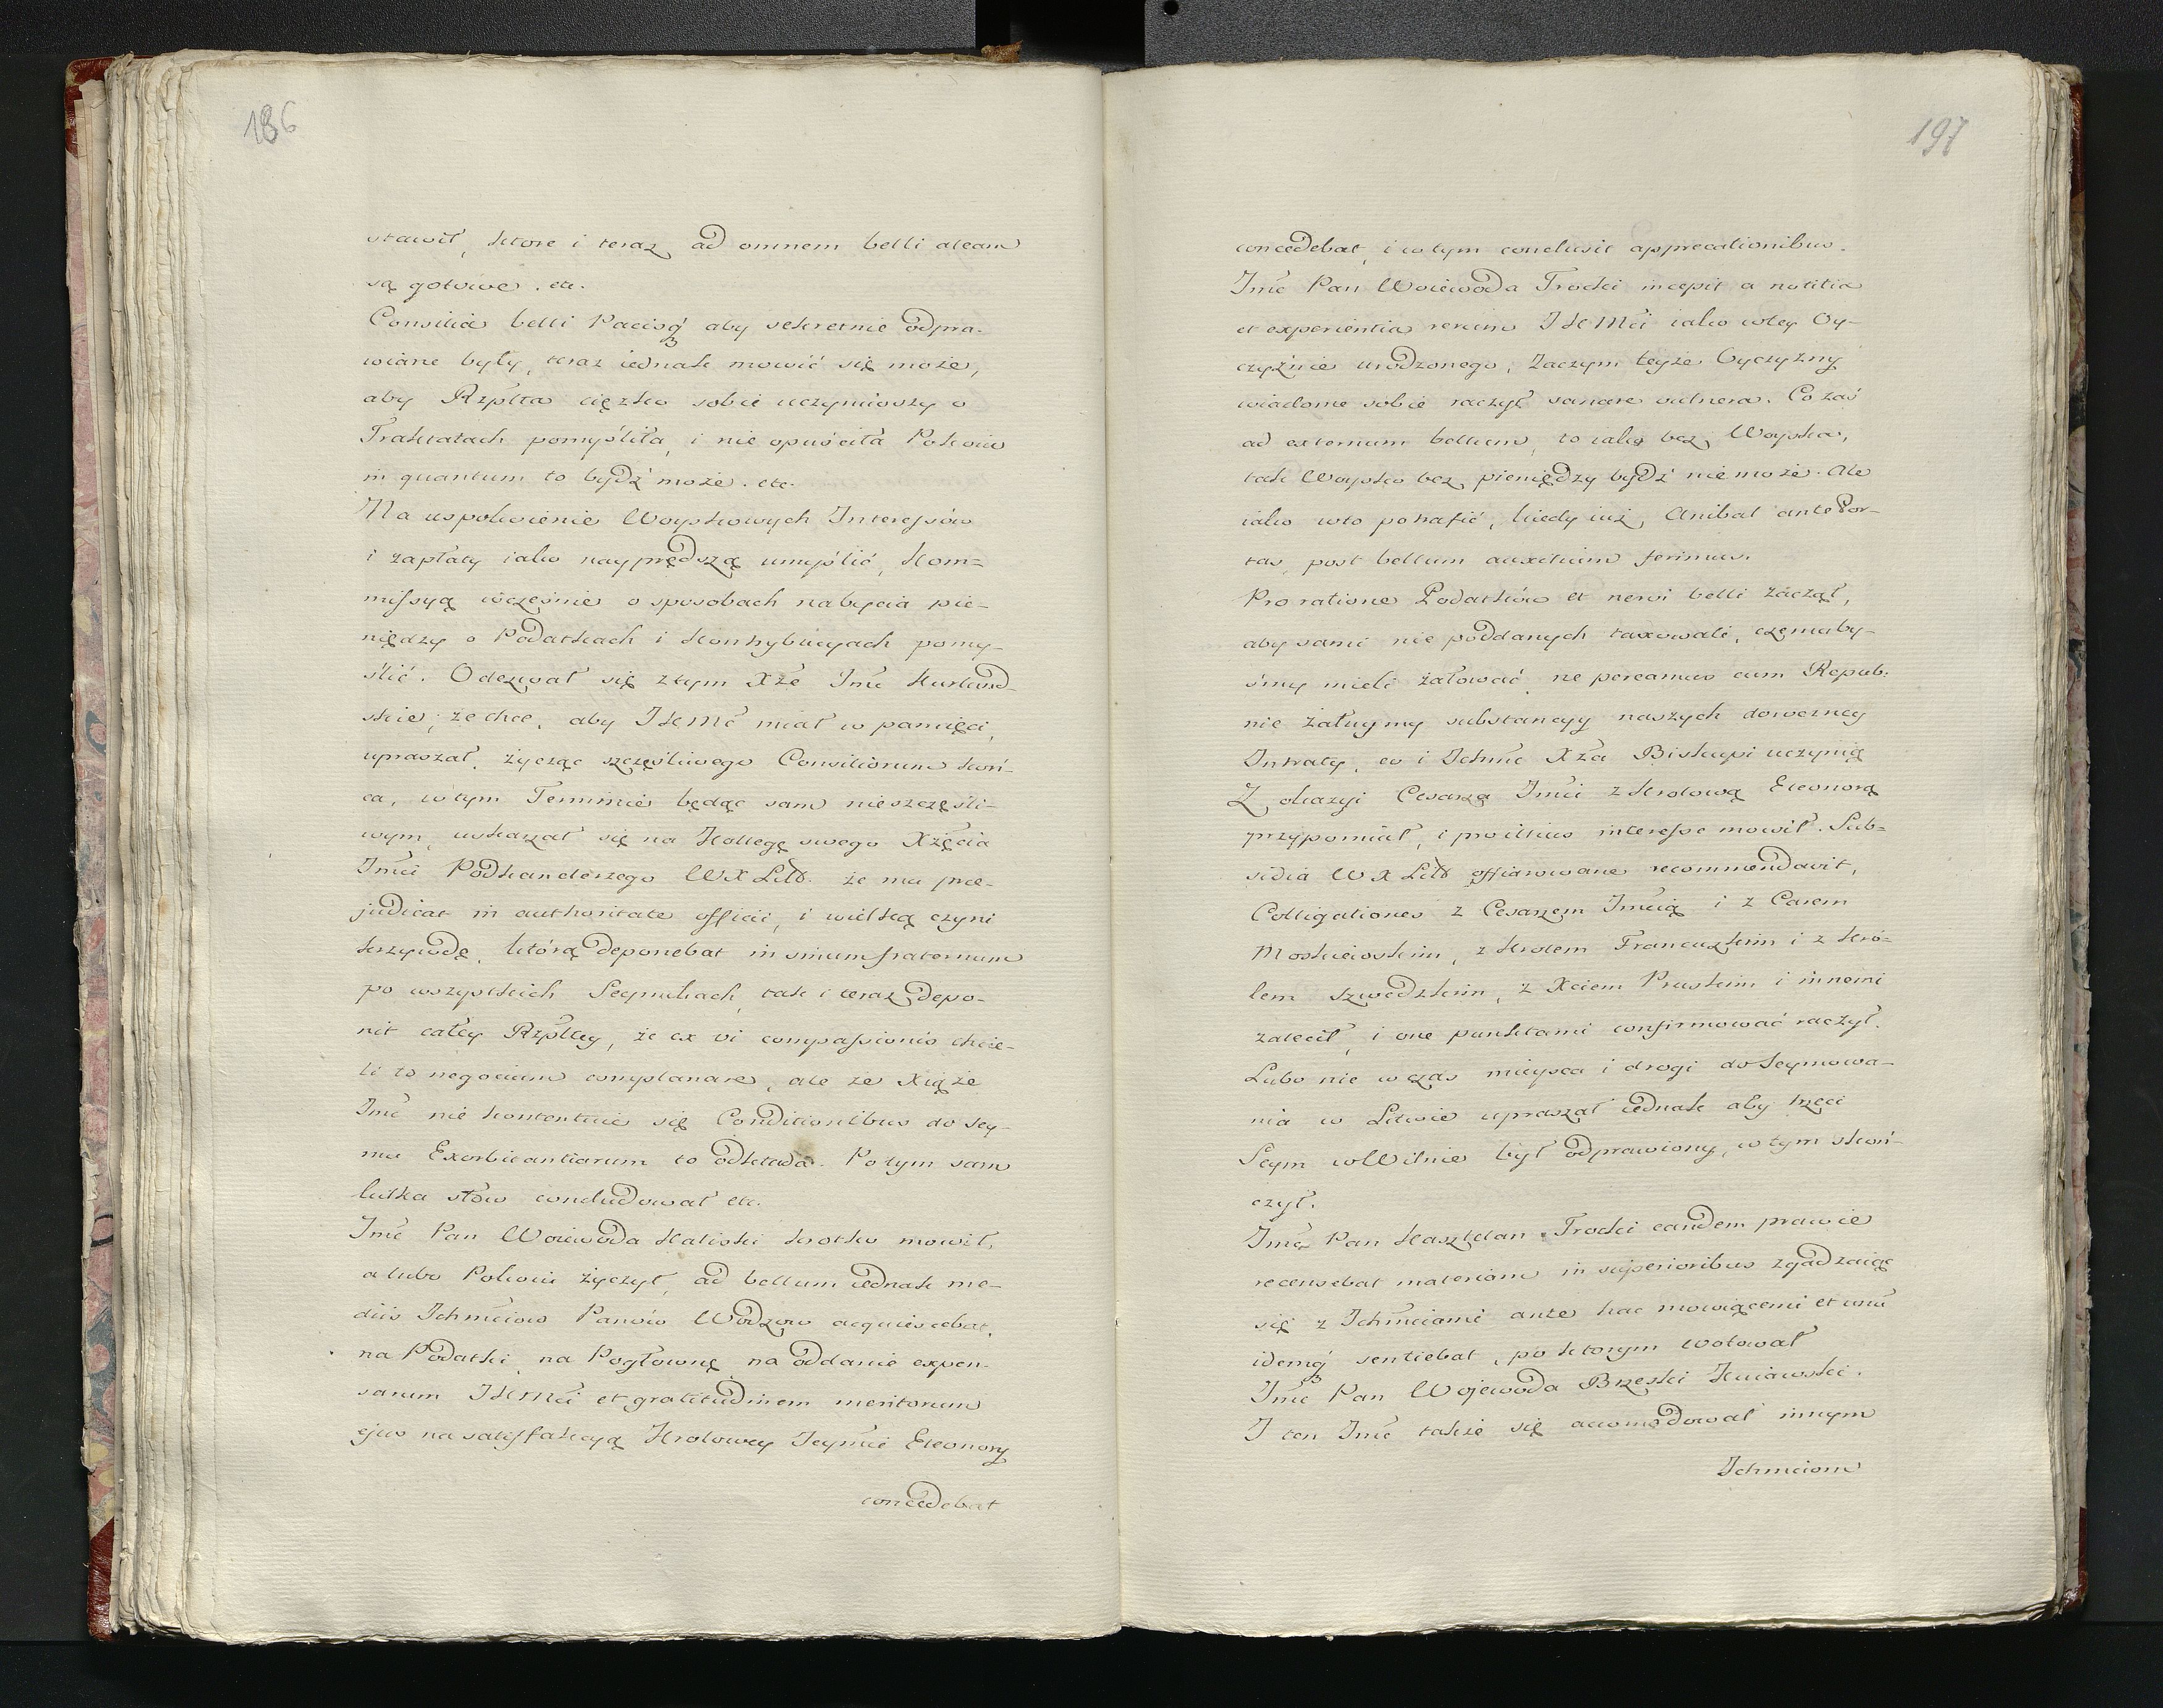 186
stawił, ktore i teraz ad omnem belli aleam
są gotowe. etc.
Consilia belli Pacisq́ aby sekretnie odpra-
wiane były, teraz iednak mowić się może,
aby Rzplta ciężko sobie uczyniwszy o
Traktatach pomyśliła, i nie opuściła Pokoiu
in quantum to bydź może. etc.
Na uspokoienie Woyskowych Interessów
i zapłaty iako nayprędszą umyślić, Kom=
missyą wcześnie o sposobach nabycia pie-
niędzy o Podatkach i Kontrybucyach pomy-
ślić. Odezwał się z tym Xże Jmć Kurland-
skie, że chce, aby JKMć miał w pamięci,
upraszał, życząc szczęśliwego Consiliorum koń-
ca, w tym Terminie będąc sam nieszczęśli-
wym, uskarzał się na Kollegę swego Xżęcia
Jmći Podkanclerzego WXLitt. że mu prae-
judicat in authoritate officii, i wielką czyni
krzywdę, którą deponebat in sinum fraternum
po wszystkich Seymikach, tak i teraz depo-
nit całey Rzpltey, że ex vi compassionis chcie-
li to negocium complanare, ale że Xiąże
Jmć nie kontentuie się Conditionibus do Sey-
mu Exorbitantiarum to odkłada. Potym sam
kilka słow concludował etc.
Jmć Pan Woiewoda Kaliski krotko mowił,
a lubo Pokoiu życzył, ad bellum iednak me-
diis Ichmciow Panów Wodzow acquiescebat,
na Podatki, na Pogłowne, na oddanie expen-
sarum JKMći et gratitudinem meritorum
ejus na satisfakcyą Krolowey Jeymći Eleonory
concedebat
197
concedebat, i w tym conclusit apprecationibus.
Jmć Pan Woiewoda Trocki incepit a notitia
et experientia rerum JKMći iako w tey Oy-
czyźnie urodzonego, Zaczym teyże Oyczyzny
wiadome sobie raczył sanare vulnera. Co zaś
ad externum bellum, to iako bez Woyska,
tak Woysko bez pieniędzy bydź nie może. Ale
iako w to potrafić, kiedy iuż, Anibal ante Por-
tas, post bellum auxilium ferimus.
Pro ratione Podatków et nervi belli zaczął,
aby sami nie poddanych taxowali, czemuby-
śmy mieli żałować, ne pereamus cum Repub:
nie żałuymy substancyy naszych doroczney
Intraty, co i Ichmć Xża Biskupi uczynią
Z okazyi Cesarza Jmći z Krolową Eleonorą
przypomniał, i pro illius interesse mowił. Sub=
sidia WXLitt offiarowane recommendavit,
Colligationes z Cesarzem Jmcią i z Carem
Moskiewskim, z Krolem Francuzkim i z Kró-
lem Szwedzkim, z Xciem Pruskim i innemi
zalecił, i one punktami confirmować raczył.
Lubo nie wczas mieysca i drogi do Seymowa-
nia w Litwie upraszał iednak aby trzeci
Seym w Wilnie był odprawiony, w tym skoń-
czył.
Jmć Pan Kasztelan Trocki eandem prawie
recensebat materiam in superioribus zgadzaiąc
się z Ichmciami ante hac mowiącemi et unu
idemq́ sentiebat, po ktorym wotował
Jmć Pan Wojewoda Brzeski Kuiawski.
I ten Jmć także się accomodował innym
Ichmciom